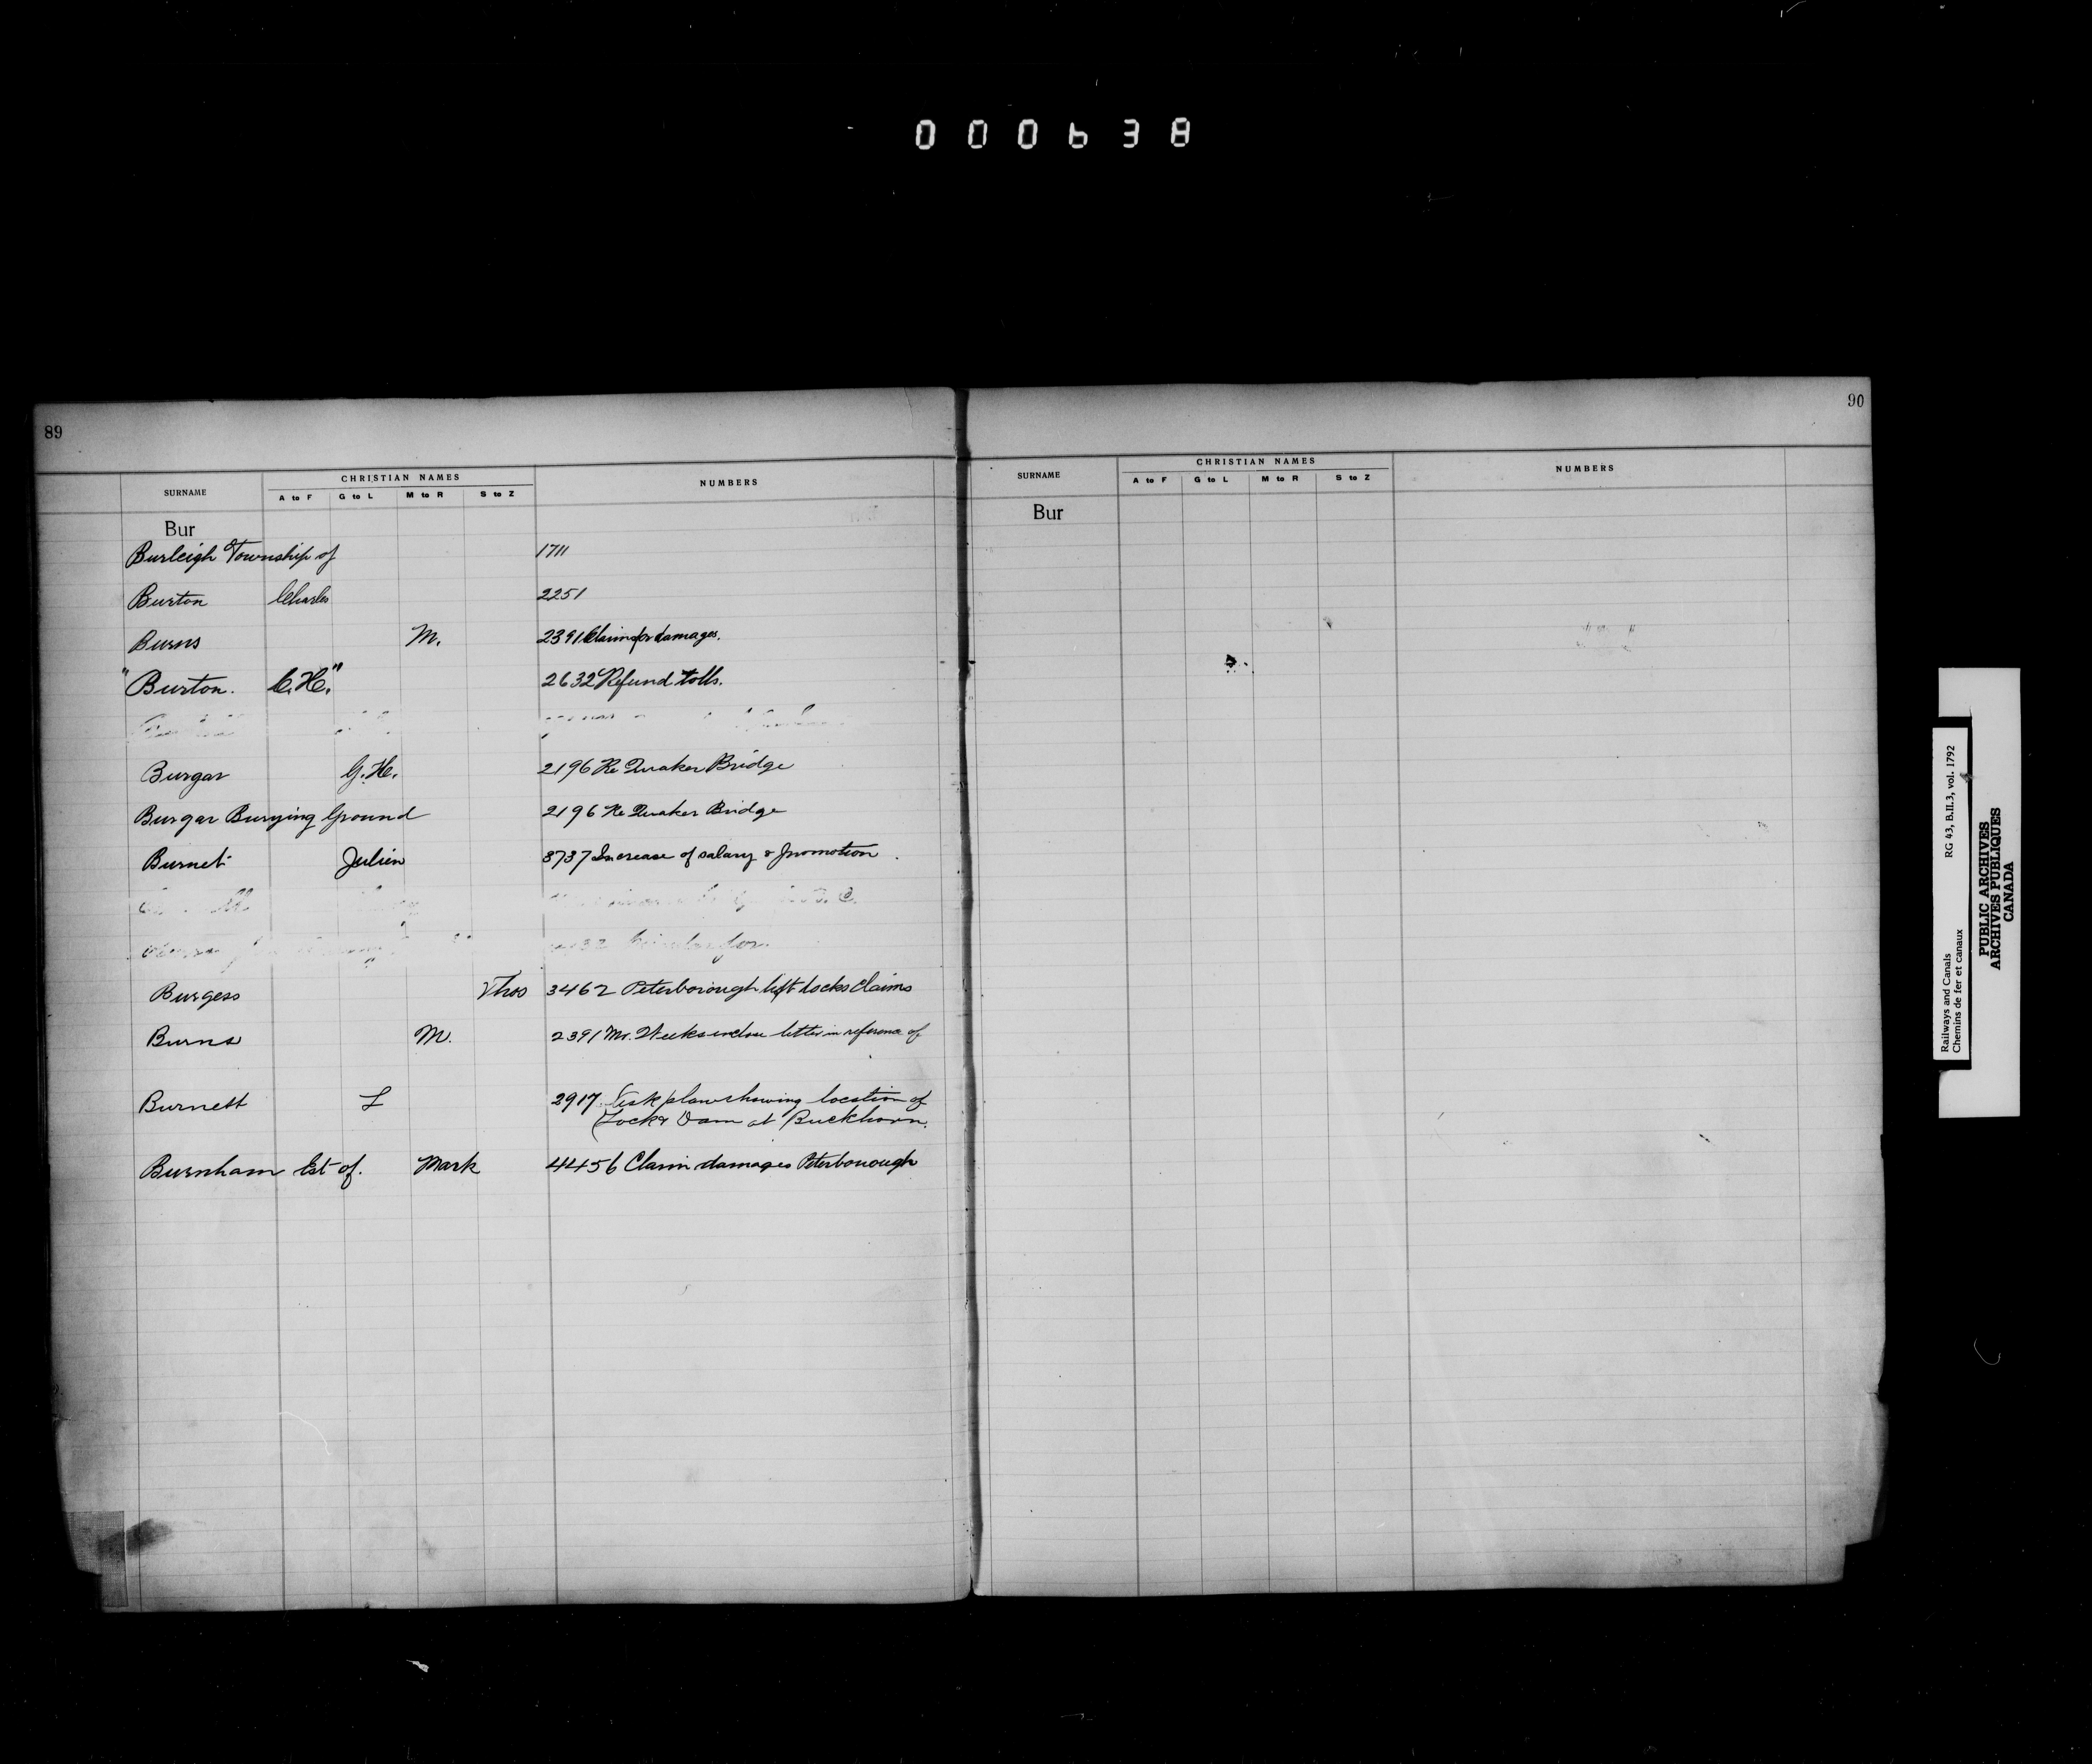 000638
89
SURNAME CHRISTIAN NAMES NUMBERS
A to F G to L M to R S to Z
Bur
Burleigh Township of 1711
Burton Charles 2251
Burns M. 2391 Claim for damages.
"Burton. C. H." 2632 Refund tolls.
Burgar G. H. 2196 Re Quaker Bridge
Burgar Burying Ground 2196 Re Quaker Bridge
Burnet Julien 3737 Increase of salary & promotion
Burgess Thos 3462 Peterborough lift locks Claims
Burns M. 2391 Mr. Weeks enclose letter in reference of
Burnett L 2917 Ask plan showing location of
Lock & Dam at Buckhorn.
Burnham Est of. Mark 4456 Claim damages Peterborough
90
SURNAME CHRISTIAN NAMES NUMBERS
A to F G to L M to R S to Z
Bur
Railways and Canals RG 43, B.II.3, vol. 1792
Chemins de fer et canaux
PUBLIC ARCHIVES
ARCHIVES PUBLIQUES
CANADA